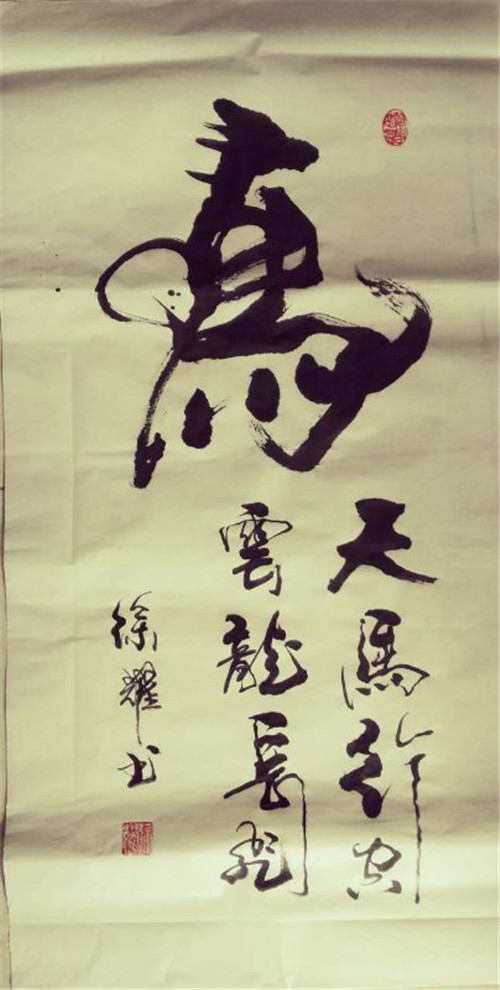 馬
天馬行空
雲龍長飛
徐耀书